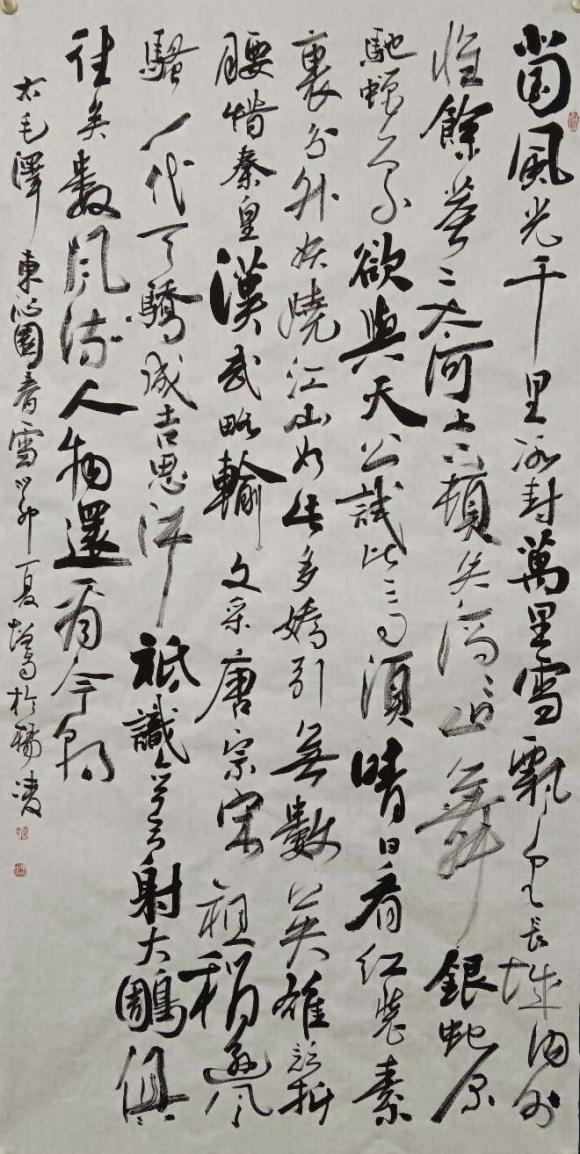 北国風光千里冰封萬里雪飄望長城内外
惟餘莽〻大河上下頓失滔〻山舞銀蛇原
馳蠟象欲與天公試比高須晴日看紅裝素
裹分外妖嬈江山如此多嬌引無數英雄競折
腰惜秦皇漢武略輸文采唐宗宋祖稍遜風
騷一代天驕成吉思汗祇識彎弓射大鵰俱
往矣數風流人物還看今朝
右毛澤東沁園春雪癸卯夏於楊凌